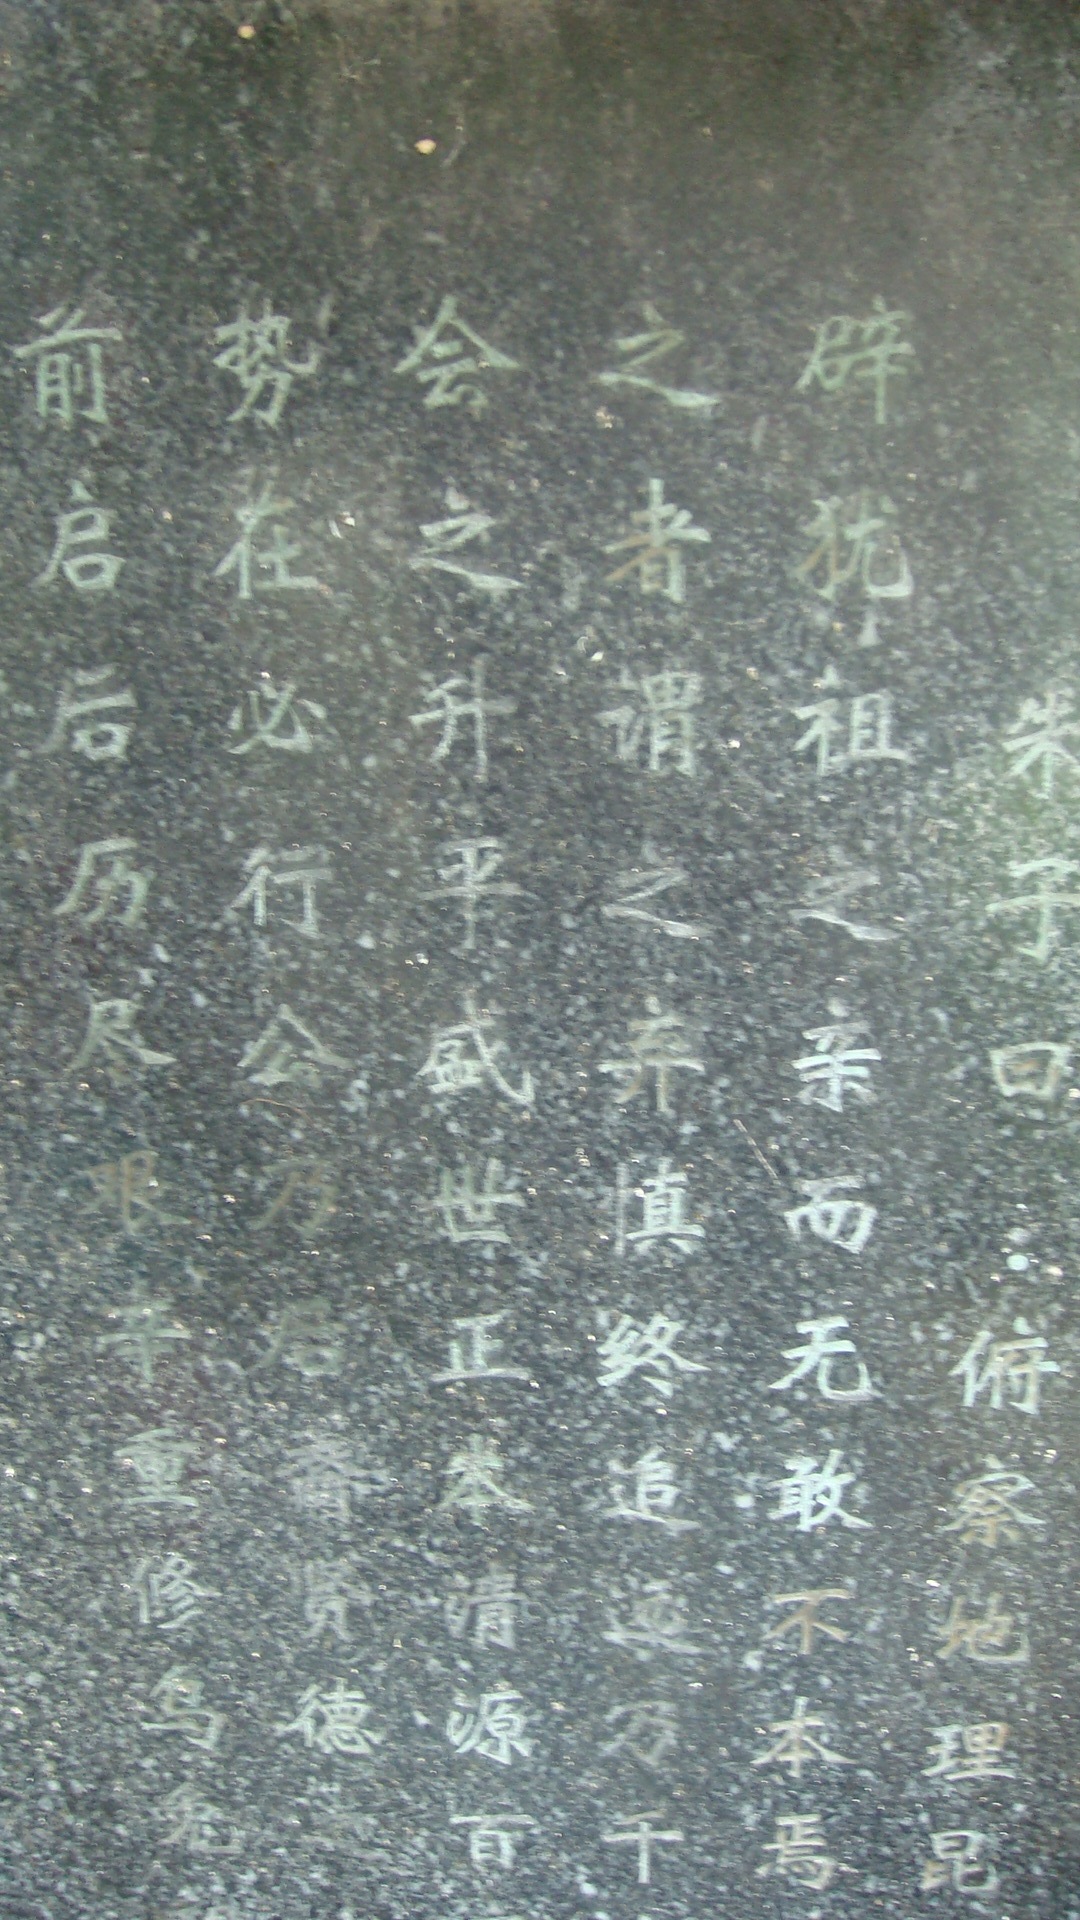 朱子曰俯察地理昆
辟犹祖之亲而无敢不本焉
之者谓之弃慎终追远乃千
会之升平盛世正本清源百
势在必行公乃后裔贤德
前启后历尽艰辛重修